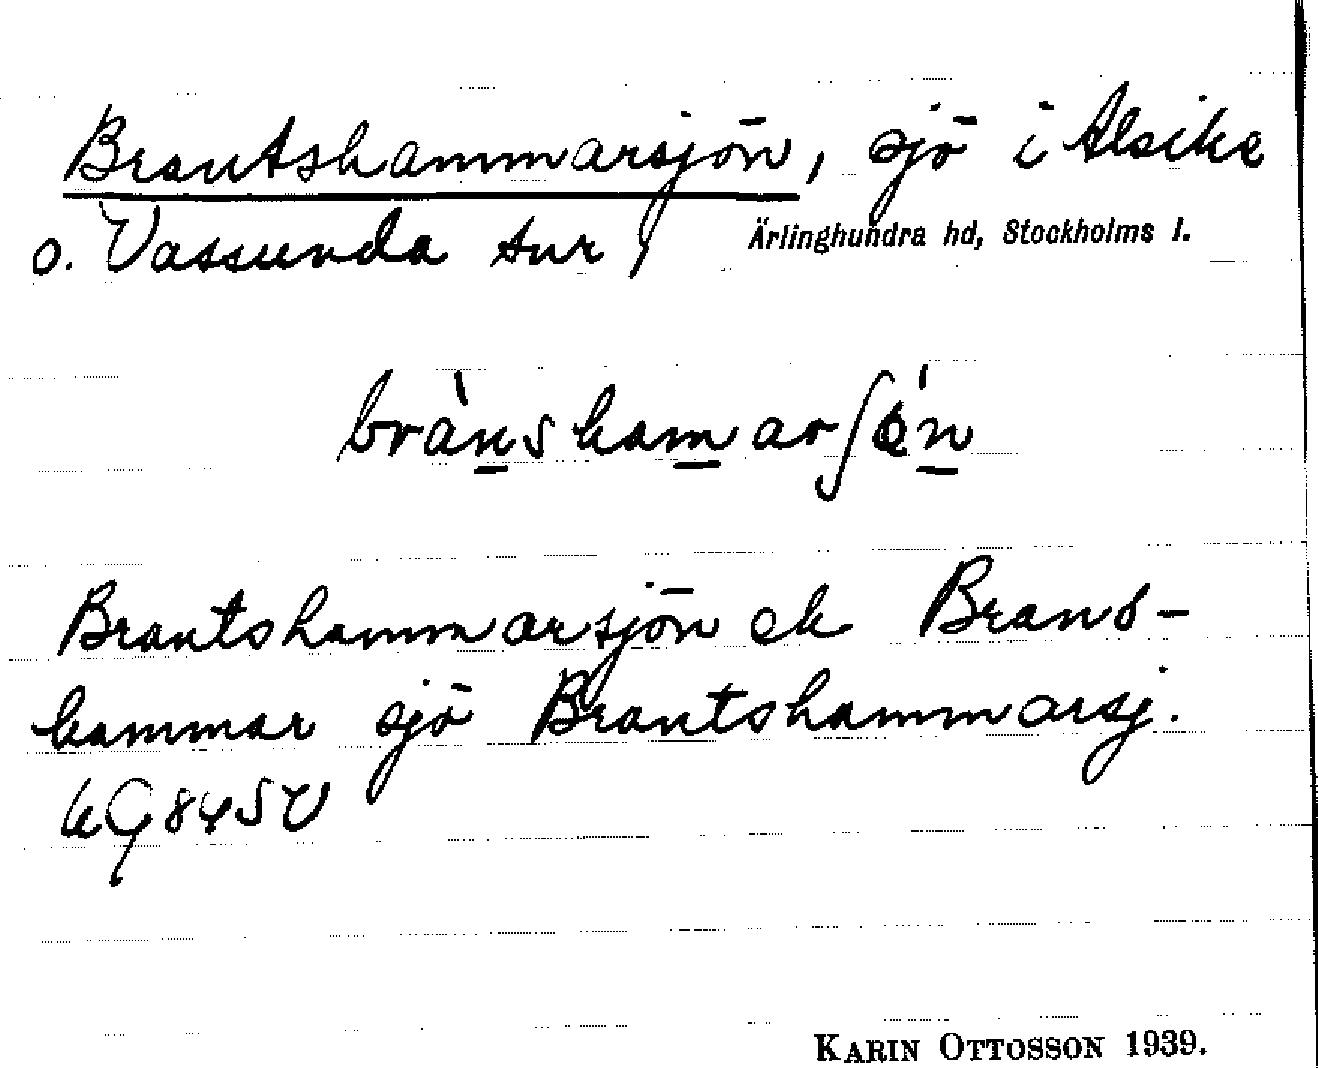 Brantshammarsjön, sjö i Alsike
o. Vassunda snr
Ärlinghundra hd, Stockholms l.
brà̱nshamarʃön
Brantshammarsjön ek Brans-
hammar sjö Brantshammarsj.
GS
KARIN OTTOSSON 1939.